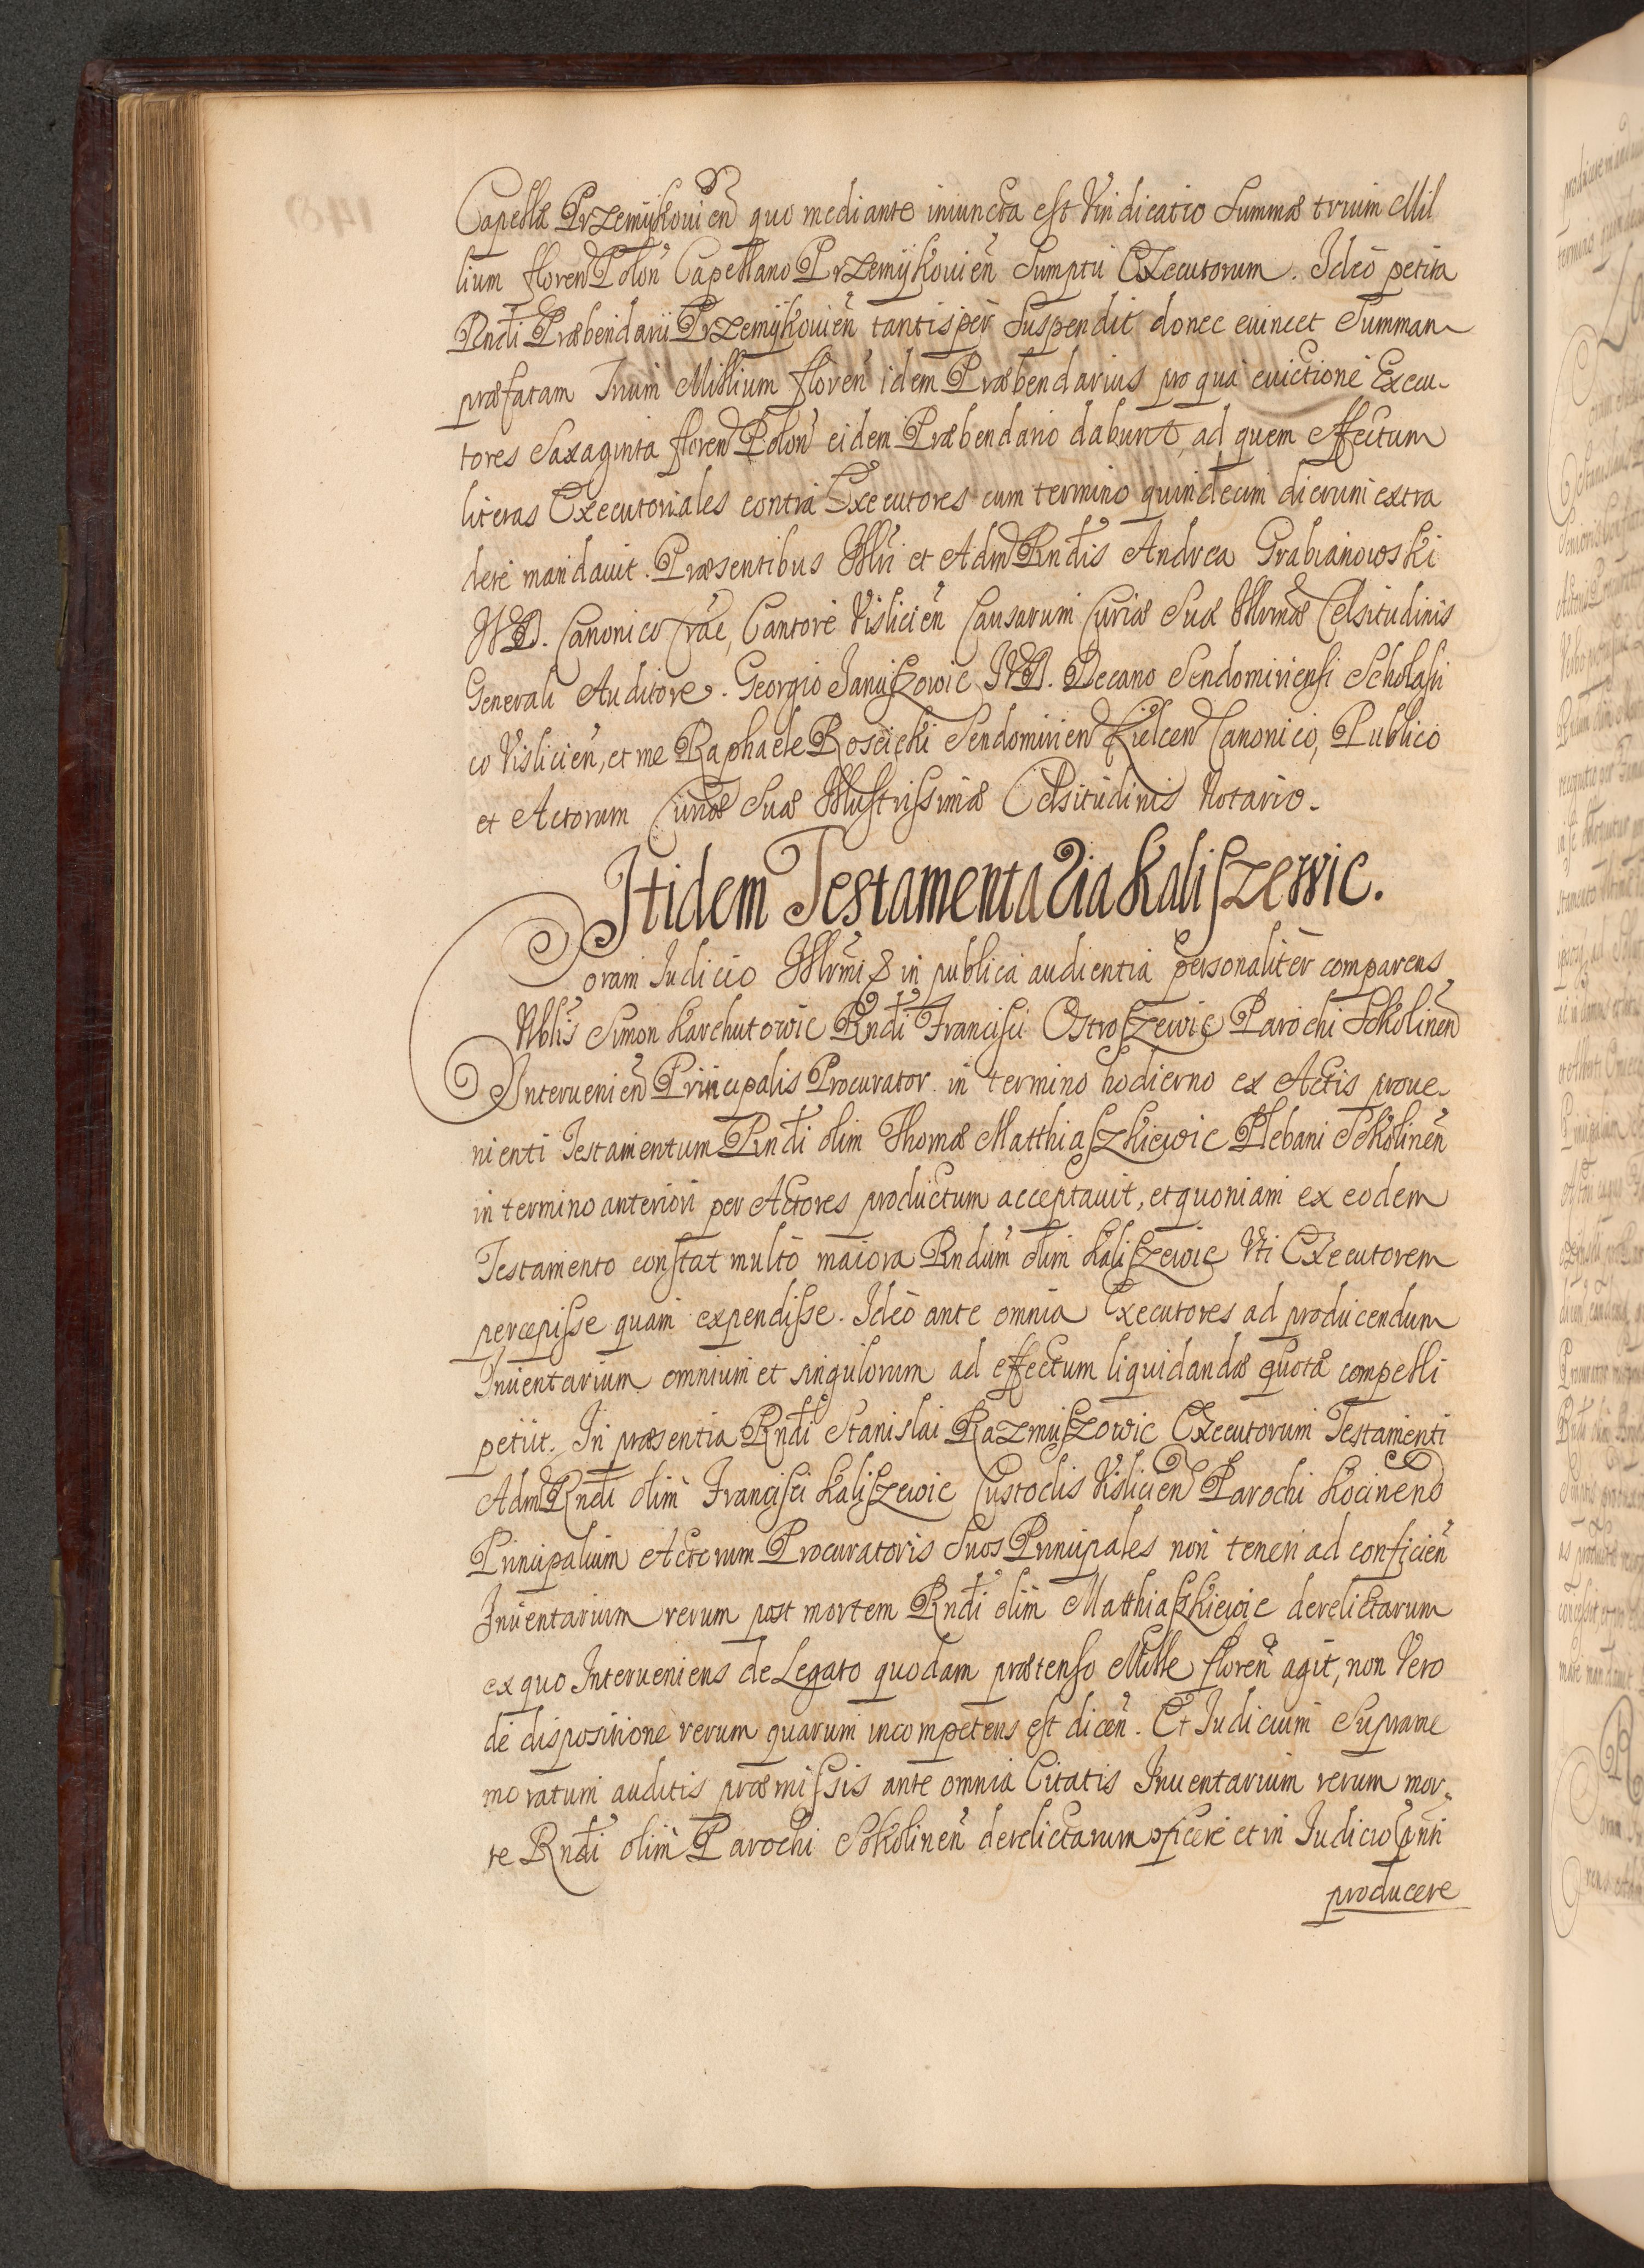 Capellæ Przemÿkouien̄ quo mediante iniuncta est Vindicatio Summæ trium Mil
lium floren̄ Polon̄ Capellano Przemÿkouien̄ Sumptu Executorum. Ideò petita
Rndi Præbendarii Przemÿkouien̄ tantisper Suspendit donec euincet Summam
præfatam Trium Millium floren̄ idem Præbendarius pro qua euictione Execu-
tores Saxaginta floren̄ Polon̄ eidem Præbendario dabunt, ad quem effectum
literas Executoriales contra Executores cum termino quindecim dierum extra
dere mandauit. Præsentibus Illri et Adm Rndis Andrea Grabianowski
IVD. Canonico Crac, Cantore Vislicien̄ Causarum Curiæ Suæ Illrmæ Celsitudinis
Generali Auditore. Georgio Januszowic IVD. Decano Sendomiriensi Scholasti
co Vislicien̄, et me Raphaele Roscicki Sendomirien̄ Kielcen̄ Canonico, Publico
et Actorum Curiæ Suæ Illustrissimæ Celsitudinis Notario.
Itidem Testamentaria Kaliszewic.
Coram Iudicio Illrmi & in publica audientia personaliter comparens
Nblis Simon Karchutowic Rndi Francisci Ostroszewic Parochi Sokolinen̄
Interuenien̄ Principalis Procurator in termino hodierno ex Actis proue-
nienti Testamentum Rndi olim Thomæ Matthiaszkiewic Plebani Sokolinen̄
in termino anteriori per Actores productum acceptauit, et quoniam ex eodem
Testamento constat multò maiora Rndum olim Kaliszewic Vti Executorem
percepisse quam expendisse. Ideò ante omnia Executores ad producendum
Inuentarium omnium et singulorum ad effectum liquidandæ quotæ compelli
petiit. In præsentia Rndi Stanislai Kazmiszowic Executorum Testamenti
Adm Rndi olim Francisci Kaliszewic Custodis Vislicien̄ Parochi Kocinen̄
Principalium Actorum Procuratoris Suos Principales non teneri ad conficien̄
Inuentarium rerum post mortem Rndi olim Matthiaszkiewic derelictarum
ex quo Interueniens de Legato quodam prætenso Mille floren̄ agit, non Vero
de dispositione rerum quarum incompetens est dicen̄. Et Iudicium Suprame
moratum auditis præmissis ante omnia Citatis Inuentarium rerum mor-
te Rndi olim Parochi Sokolinen̄ derelictarum oficere et in Iudicio pnti
producere